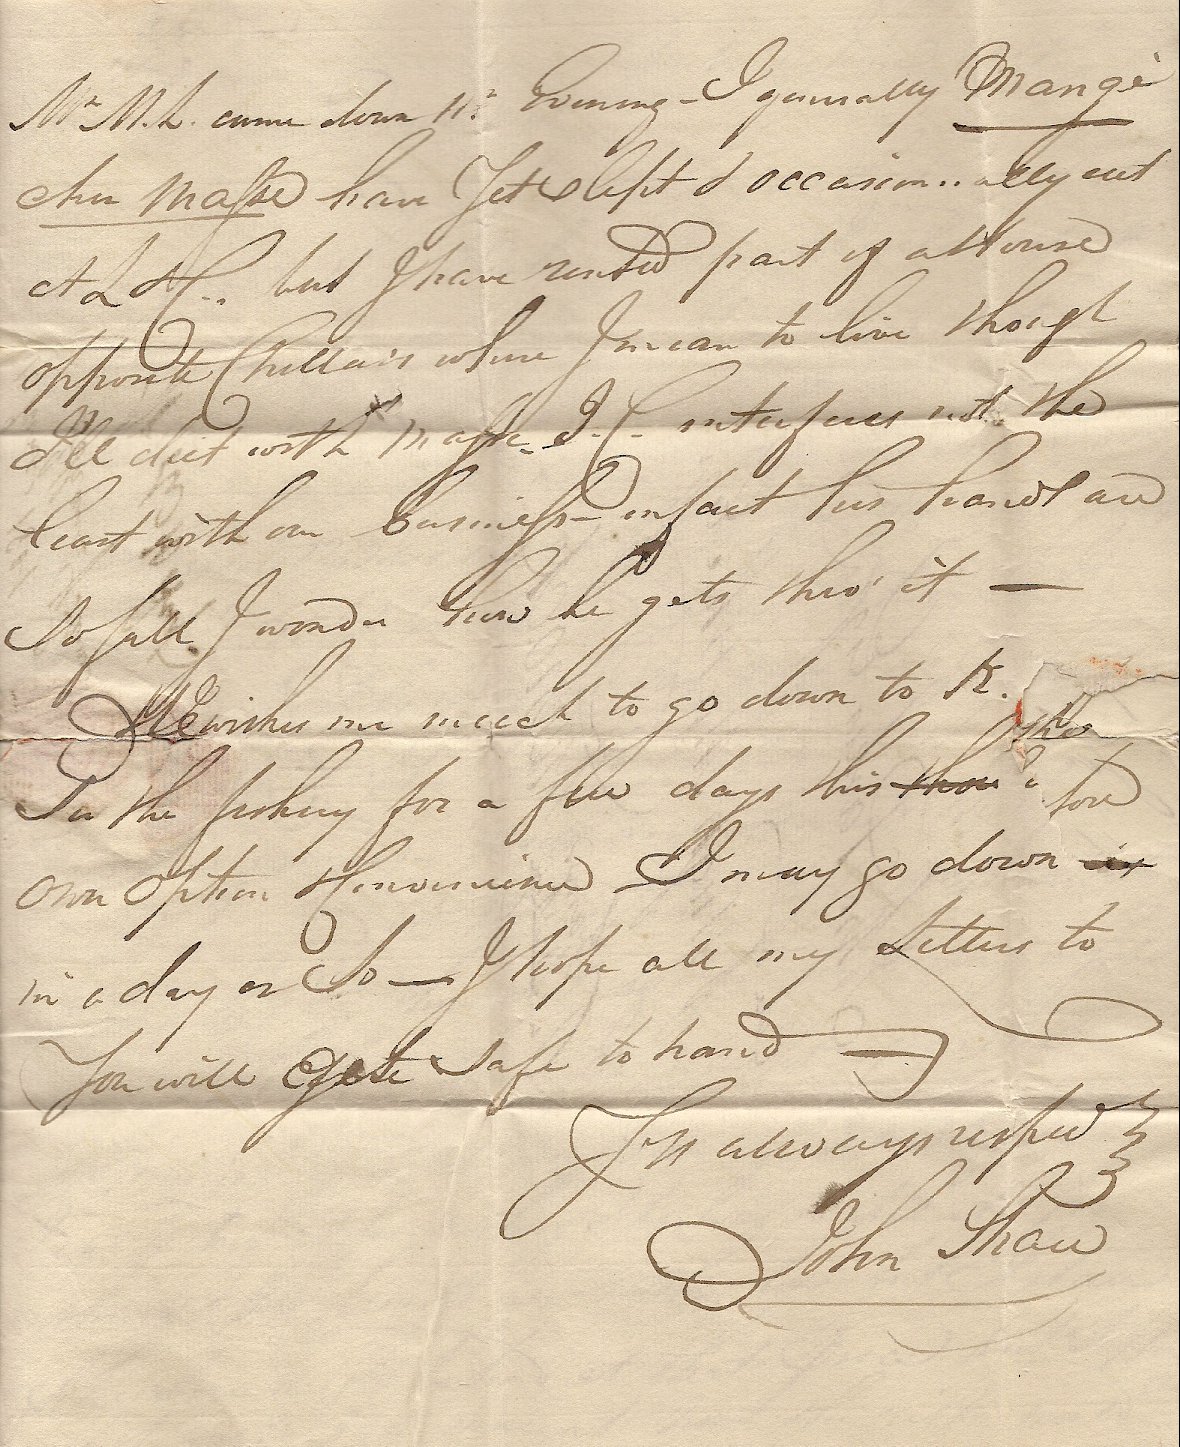 Mr M.L. came down Ys. Evening - I generally Mangè
chez Masse have Yet Slept & occasion..ally eat
at L H.. but I have rented part of a House
opposite where I mean to live though
I'll diet with Masse. I.C. interferes not the
least with our business - in fact his hands are
So full I wonder how he gets thro' it —
He wishes me much to go down to K. the
To the fishery for a few days this tho'
own option & Convenience I may go down
in a day or So — I hope all my Letters to
You will get Safe to hand —
Yrs always respec
John Shaw